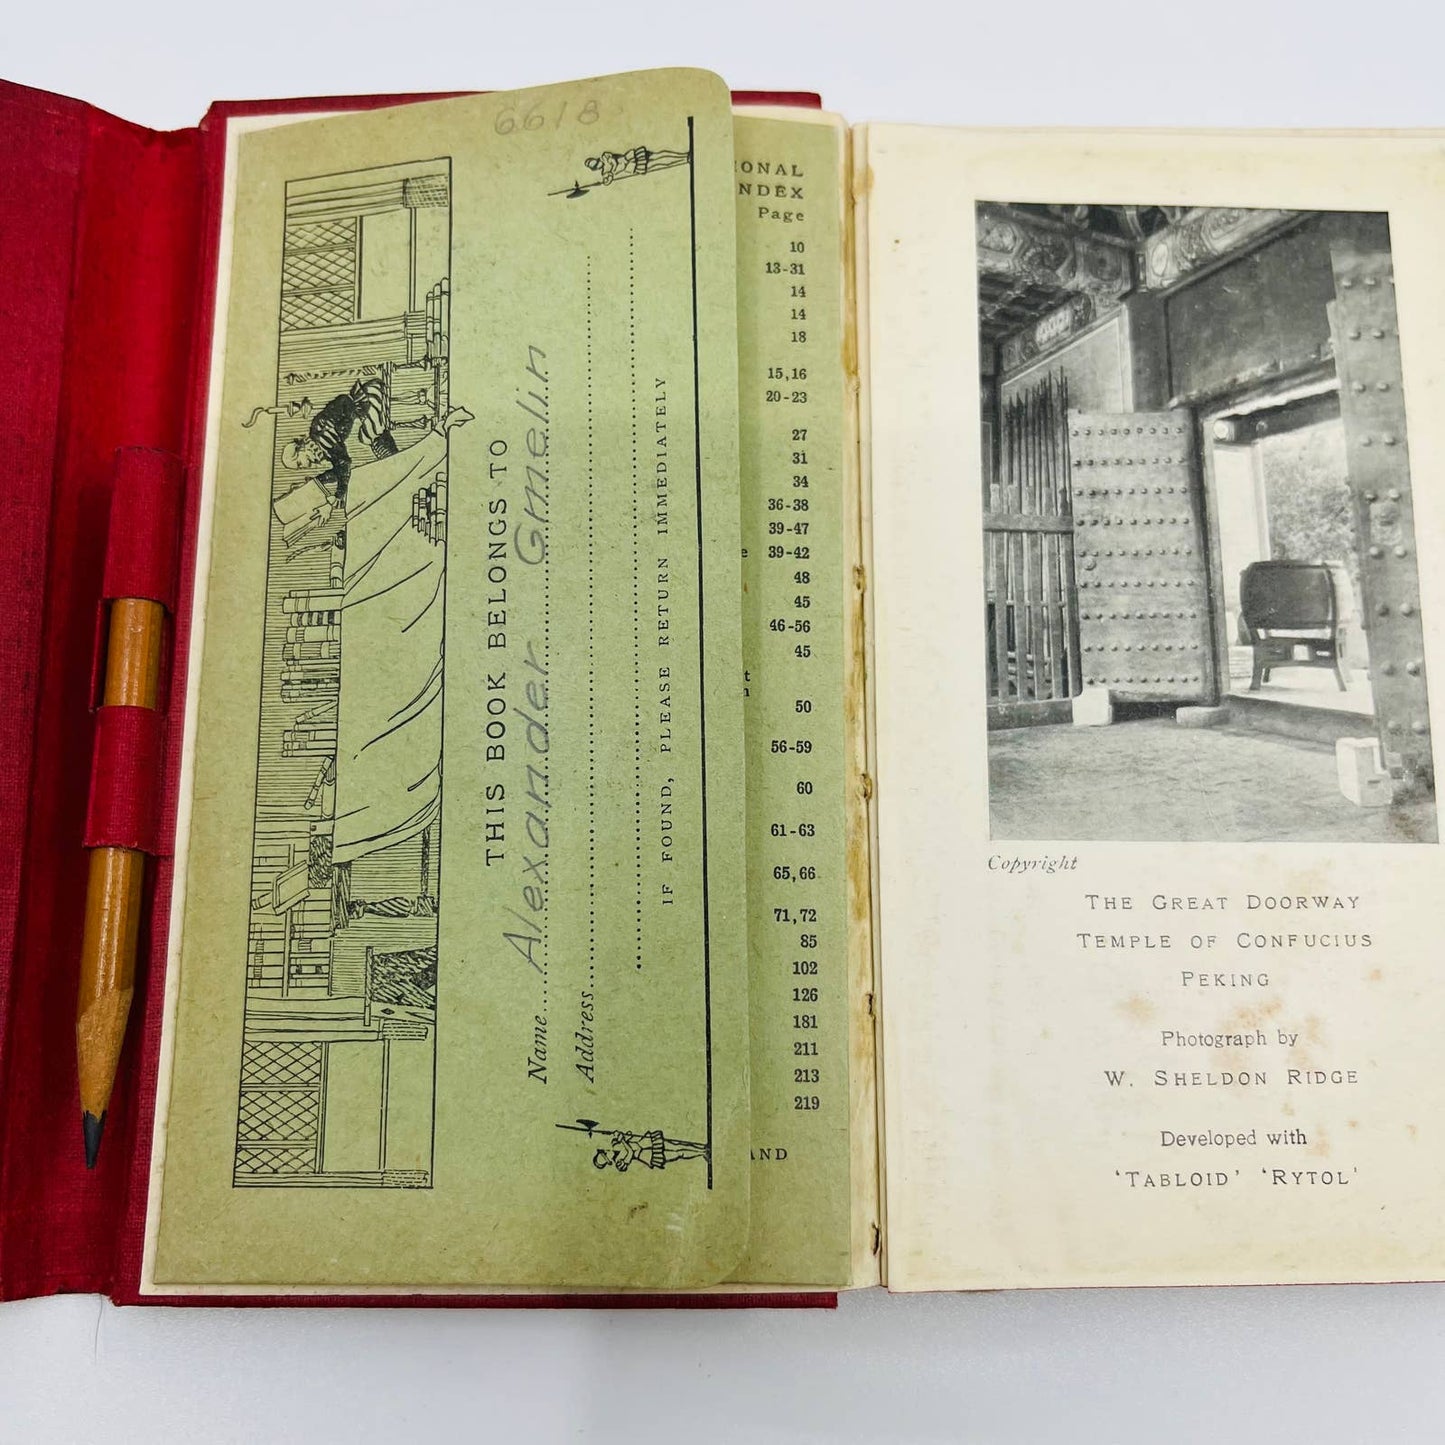 6618
THIS BOOK BELONGS TO
Name Alexander Gmelin
Address
IF FOUND, PLEASE RETURN IMMEDIATELY
IONAL
NDEX
Page
10
13-31
14
14
18
15,16
20-23
27
31
34
36-38
39-47
e 39-42
48
45
46-56
45
t
n
50
56-59
60
61-63
65,66
71,72
85
102
126
181
211
213
219
AND
Copyright
THE GREAT DOORWAY
TEMPLE OF CONFUCIUS
PEKING
Photograph by
W. SHELDON RIDGE
Developed with
'TABLOID' 'RYTOL'